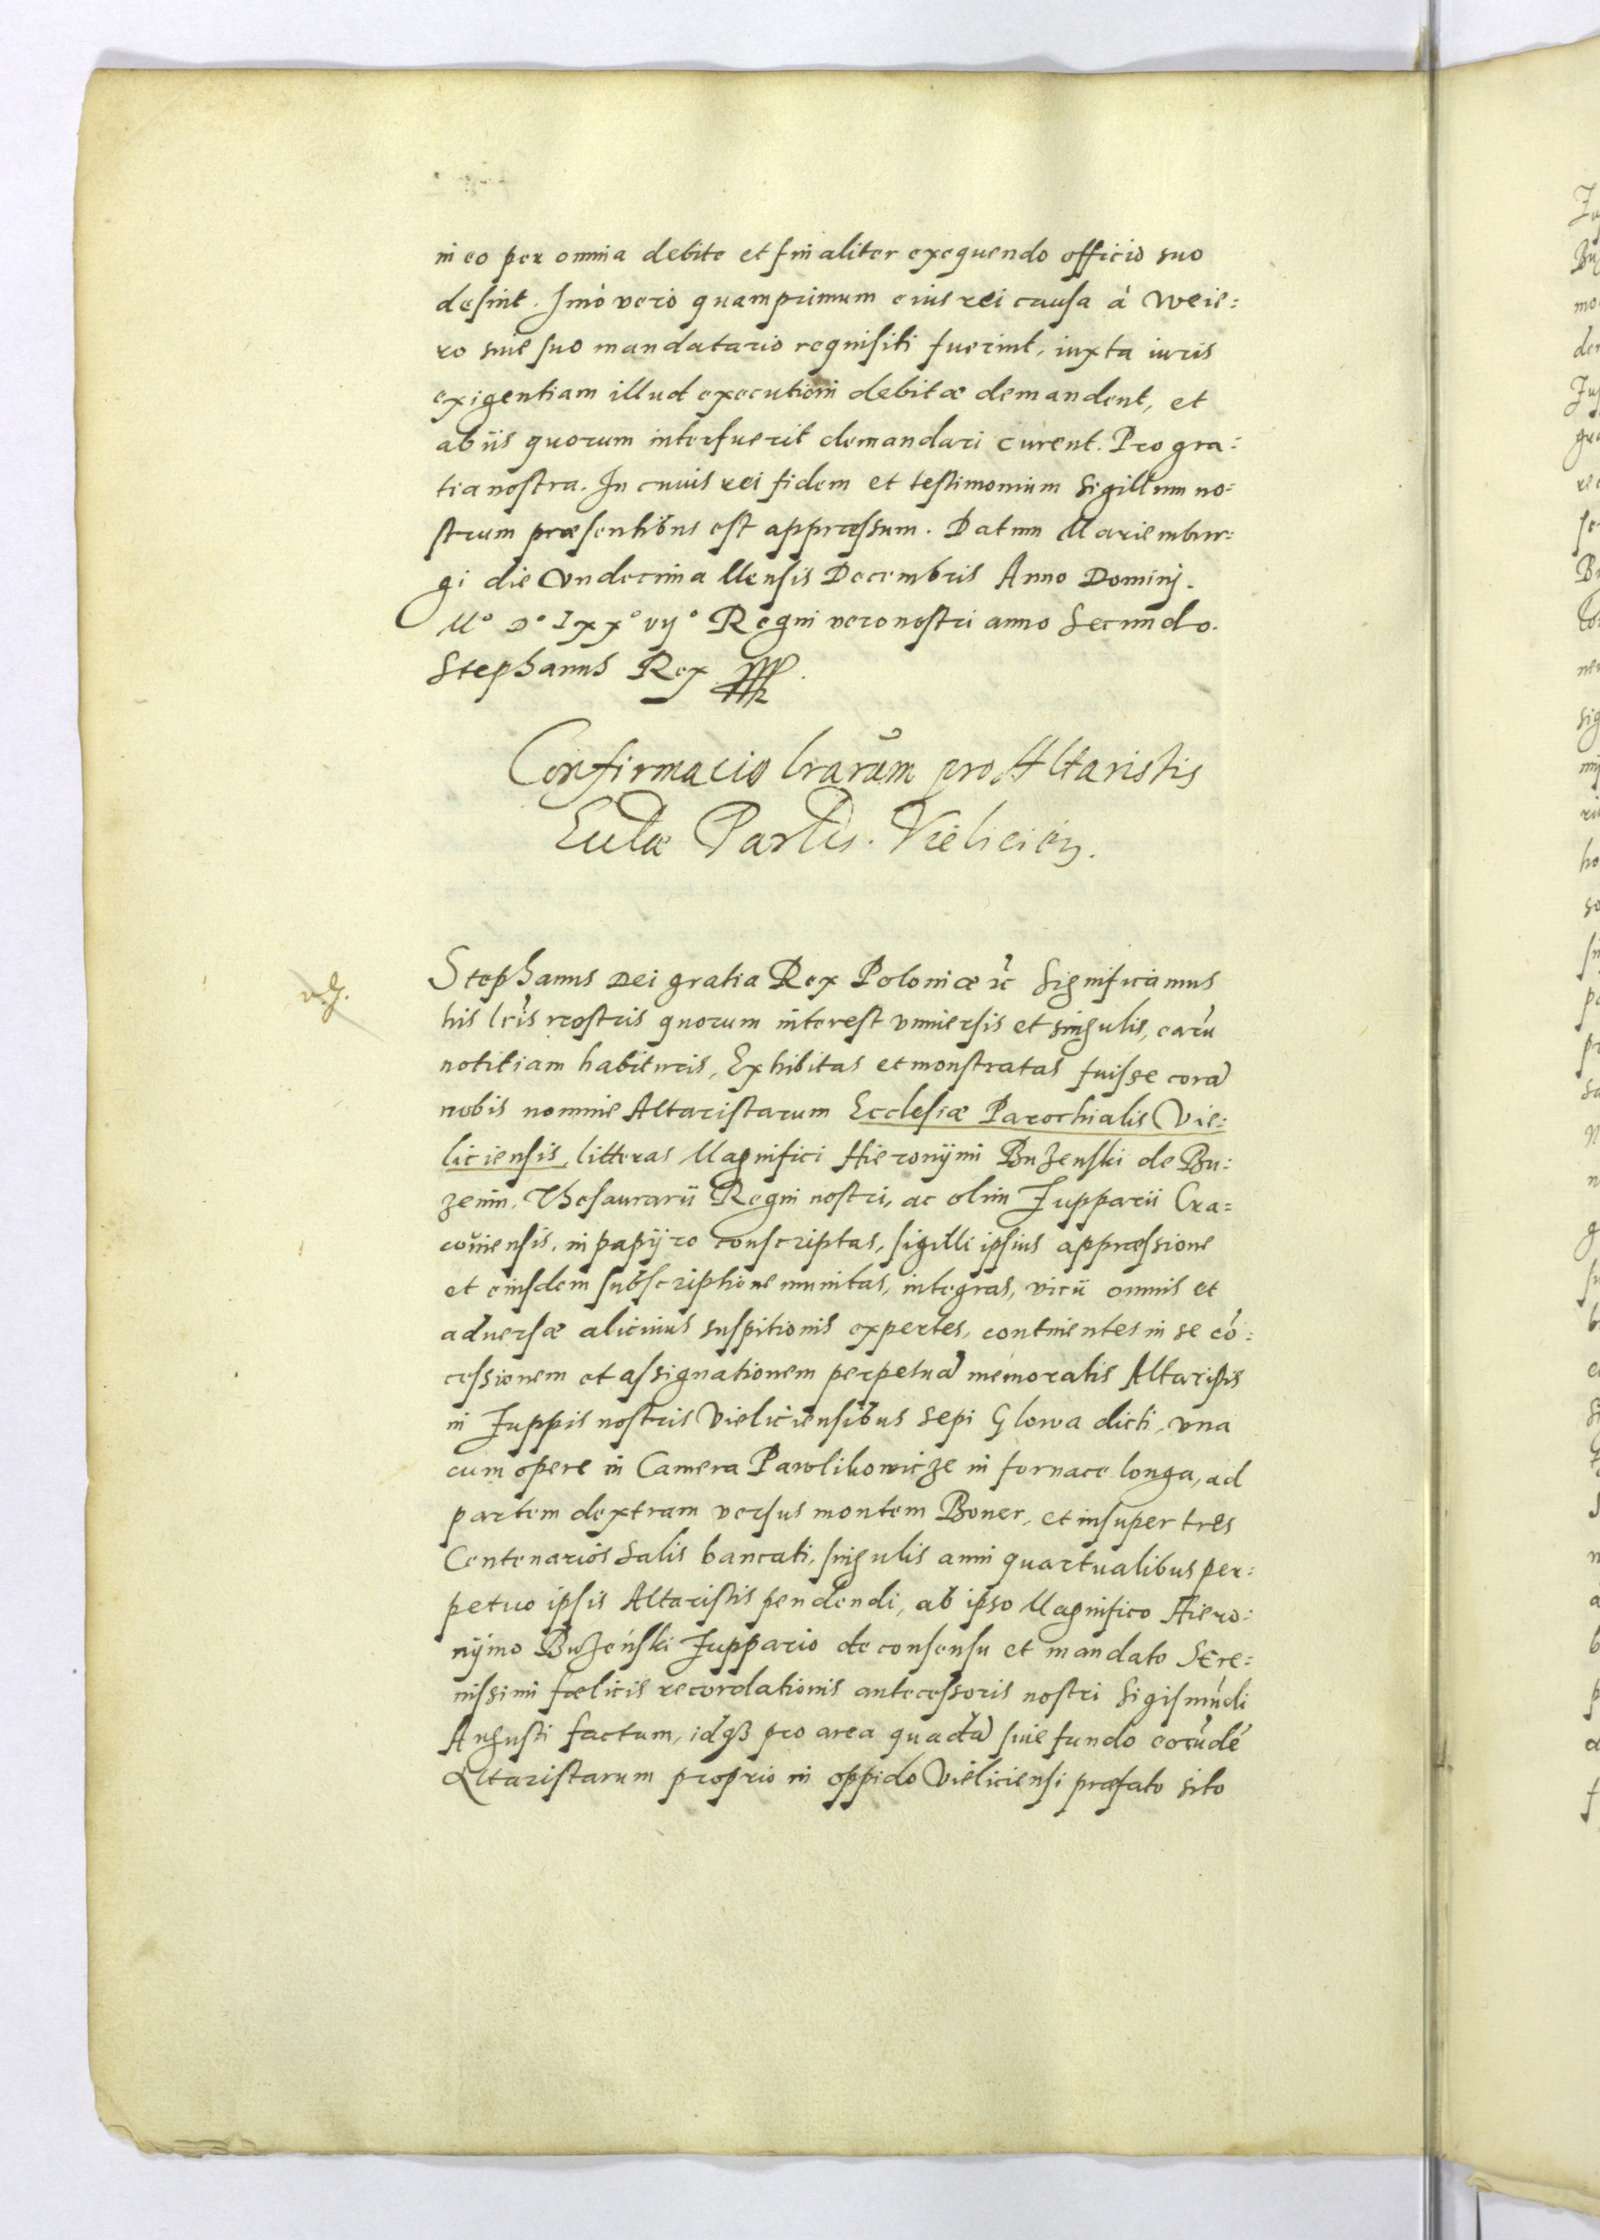 in eo per omnia debite et finaliter exequendo officio suo
desint. Imò verò quamprimum eius rei causa à Weie:
ro siue suo mandatario requisiti fuerint, iuxta iuris
exigentiam illud executioni debitæ demandent, et
ab iis quorum interfuerit demandari curent. Pro gra:
tia nostra. In cuius rei fidem et testimonium Sigillum no:
strum præsentibus est appressum. Datum Mariembur:
gi die Vndecima Mensis Decembris Anno Dominj.
Mº Dº Lxxº vijº Regni vero nostri anno Secundo.
Stephanus Rex
Confirmacio lrarum pro Altaristis
Eccłæ Parłis. Vielicień.
Stephanus Dei gratia Rex Poloniæ ꝛc Significamus
his lris nostris quorum interest vniuersis et singulis, earū
notitiam habituris, Exhibitas et monstratas fuisse corā
nobis nomine Altaristarum Ecclesiæ Parochialis Vie:
liciensis, litteras Magnifici Hieronÿmi Buzenski de Bu:
zenin, Thesaurarii Regni nostri, ac olim Zupparii Cra=
couiensis, in papÿro conscriptas, sigilli ipsius appressione
et eiusdem subscriptione munitas, integras, vicii omnis et
aduersæ alicuius suspitionis expertes, continentes in se cō:
cessionem et assignationem perpetuā memoratis Altaristis
in Zuppis nostris Vieliciensibus sepi Glowa dicti, vna
cum opere in Camera Pawlikowicze in fornace longa, ad
partem dextram versus montem Boner, et insuper tres
Centenarios Salis bancati, singulis anni quartualibus per:
petuo ipsis Altaristis pendendi, ab ipso Magnifico Hiero:
nÿmo Bużeński Zuppario de consensu et mandato Sere:
nissimi fœlicis recordationis antecessoris nostri Sigismūdi
Augusti factum, idqȝ pro area quadā siue fundo eorūdē
Altaristarum proprio in oppido Vieliciensi præfato sito